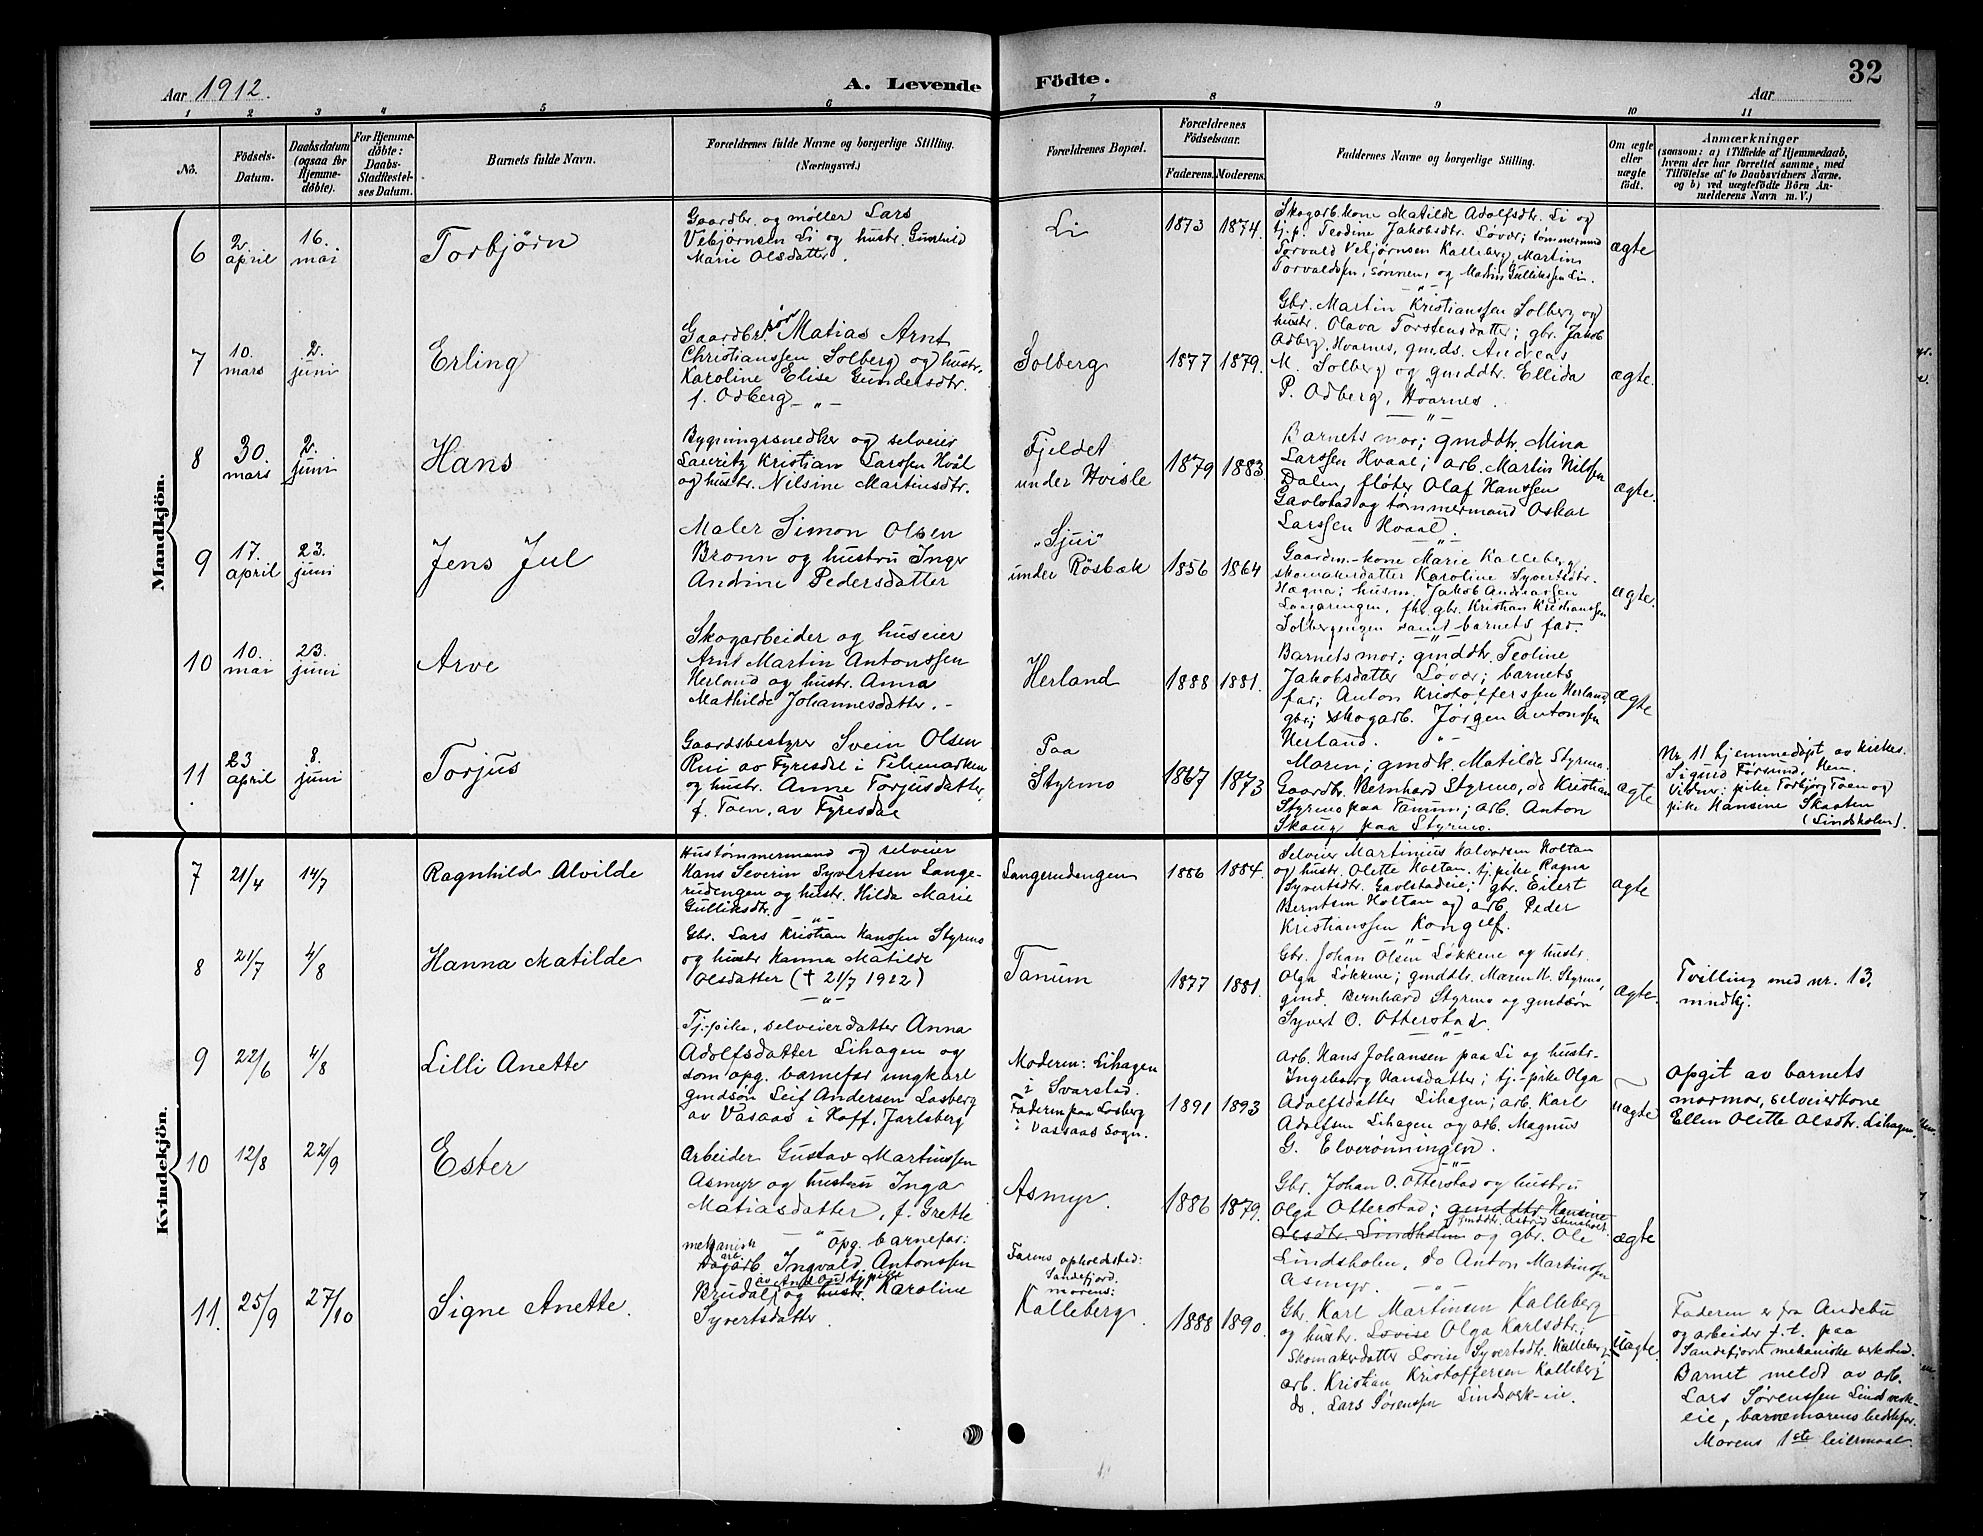 32
Aar 1912.
A. Levende Födte.
Aar
1 2 3 4 5 6 7 8 9 10 11
No.
Födsels-
Datum.
Daabsdatum
(ogsaa for
Hjemme-
döbte).
For Hjemme-
döbte:
Daabs-
Stadfæstel-
ses Datum.
Barnets fulde Navn.
Forældrenes fulde Navne og borgerlige Stilling.
(Næringsvei.)
Forældrenes Bopæl.
Forældrenes
Födselsaar.
Faderens. Moderens.
Faddernes Navne og borgerlige Stilling.
Om ægte
eller
uægte
födt.
Anmærkninger
(saasom: a) i Tilfælde af Hjemmedaab,
hvem der har forrettet samme, med
Tilföielse af to Daabsvidners Navne,
og b) ved uægtefödte Börn An-
melderens Navn m. V.)
Mandkjön.
6
2. april
16. mai
Torbjørn
Gaardbr. og møller Lars
Vebjørnsen Li og hustr. Gunhild
Marie Olsdatter.
Li
1873 1874.
Skogarb.kone Matilde Adolfsdtr. Li og
tj.p. Teodine Jakobsdtr. Løvår; tømmermand
Torvald Vebjørnsen Kalleberg, Martin
Torvaldsen, sønnen, og Martin Gulliksen Li.
ægte
7
10. mars
2. juni
Erling
Gaardbr.søn Matias Arnt
Christianssen Solberg og hustr.
Karoline Elise Gundersdtr.
f. Odberg
Solberg
1877 1879.
Gbr. Martin Kristianssen Solberg og
hustr. Olava Torstensdatter; gbr. Jakob
Odberg, Hvarnes, gmds. Andreas
M. Solberg og gmddtr. Ellida
P. Odberg, Hvarnes.
ægte.
8
30. mars
2. juni
Hans
Bygningssnedker og selveier
Lauritz Kristian Larssen Hvål
og hustr. Nilsine Martinsdtr.
Fjeldet
under Hvisle
1879 1883.
Barnets mor; gmddtr. Mina
Larssen Hvaal; arb. Martin Nilssen
Dalen, fløter Olaf Hanssen
Gavlstad og tømmermand Oskar
Larssen Hvaal.
ægte.
9
17. april
23. juni
Jens Jul
Maler Simon Olsen
Bronn og hustru Inger
Andine Pedersdatter
"Sjui"
under Rösbæk
1856 1864
Gaardm.-kone Marie Kalleberg,
skomakerdatter Karoline Syvertsdtr.
Hægna; husm. Jakob Andreassen
Langåringen, fhv. gbr. Kristian Kristianssen
Solbergengen samt barnets far.
ægte.
10
10. mai
23. juni
Arve
Skogarbeider og huseier
Arnt Martin Antonssen
Herland og hustr. Anna
Mathilde Johannesdatter.
Herland
1888 1881.
Barnets mor; gmddtr. Teoline
Jakobsdatter Løvår; barnets
far; Anton Kristofferssen Herland,
gbr; skogarb. Jørgen Antonssen
Herland.
ægte
11
23 april
8. juni
Torjus
Gaardsbestyrer Svein Olsen
Rui av Fyresdal i Tilemarken
og hustr. Anne Torjusdatter,
f. Toen, av Fyresdal
Paa
Styrmo
1867 1873
Maren; gmdk. Matilde Styrmo.
Gaardbr. Bernhard Styrmo, do Kristian
Styrmo paa Tanum; arb. Anton
Skaug paa Styrmo.
ægte
Nr. 11 hjemmedøpt av kirkes.
Sigurd Førsund, Hem.
Vidner: pike Torbjørg Toen og
pike Hansine Skaaten
(Lindsholm).
Kvindekjön.
7
21/4
14/7
Ragnhild Alvilde
Hustømmermand og selveier
Hans Severin Syvertsen Lange-
rudengen og hustr. Hilda Marie
Gulliksdtr.
Langerudengen
1886 1884.
Selveier Martinius Halvorsen Holtan
og hustr. Olette Holtan. tj.pike Ragna
Syvertsdtr. Gavlstadeie; gbr. Eilert
Berntsen Holtan og arb. Peder
Kristianssen Kongelf.
ægte
8
21/7
4/8
Hanna Matilde
Gbr. Lars Kristian Hanssen Styrmo
og hustr Hanna Matilde
Olsdatter († 21/7 1912)
Tanum
1877 1881.
Gbr. Johan Olsen Løkkene og hustr.
Olga Løkkene; gmddtr. Maren H. Styrmo,
gmd. Bernhard Styrmo og gmdsøn
Syvert O. Otterstad.
ægte.
Tvilling med nr. 13,
mndkj.
9
22/6
4/8
Lilli Anette
Tj.-pike, selveierdatter Anna
Adolfsdatter Lihagen og
som opg. barnefar ungkarl
gmdsøn Leif Andersen Losberg
av Vasaas i Hoff, Jarlsberg
Moderen: Lihagen
i Svarstad.
Faderen paa Losberg
i Vassaas Sogn.
1891 1893
Arb. Hans Johansen paa Li og hustr.
Ingeborg Hansdatter; tj.-pike Olga
Adolfsdatter Lihagen; arb. Karl
Adolfsen Lihagen og arb. Magnus
G. Elverönningen.
uægte
Opgit av barnets
mormor, selveierkone
Ellen Olette Olsdtr. Lihagen.
10
12/8
22/9
Ester
Arbeider Gustav Martinssen
Asmyr og hustru Inga
Matiasdatter, f. Grette
Asmyr.
1886 1879.
Gbr. Johan O. Otterstad og hustru
Olga Otterstad; gmddtr. Hansine
gmddtr. Astrid Stensholt
Olsdtr. Lindsholm og gbr. Ole
Lindsholm, do Anton Martinsen
Asmyr.
ægte
11.
25/9
27/10
Signe Anette.
opg. barnefar:
mekanisk arb. Ingvald Antonssen
Brudal, av Andebu og tj.pike hustr. Karoline
Syvertsdatter.
Farens opholdssted:
Sandefjord.
morens:
Kalleberg.
1888 1890.
Gbr. Karl Martinsen Kalleberg
og hustr. Lovise Olga Karlsdtr.;
Skomakerdatter Lovise Syvertsdtr. Kalleberg,
arb. Kristian Kristoffersen Kalleberg
do. Lars Sørenssen Lindverk-eie.
Uægte.
Faderen er fra Andebu
og arbeider f.t. paa
Sandefjord mekaniske verksted.
Barnet meldt av arb.
Lars Sørenssen Lindverk-
eie, barnemorens bedstefar.
Morens 1ste leiermaal.